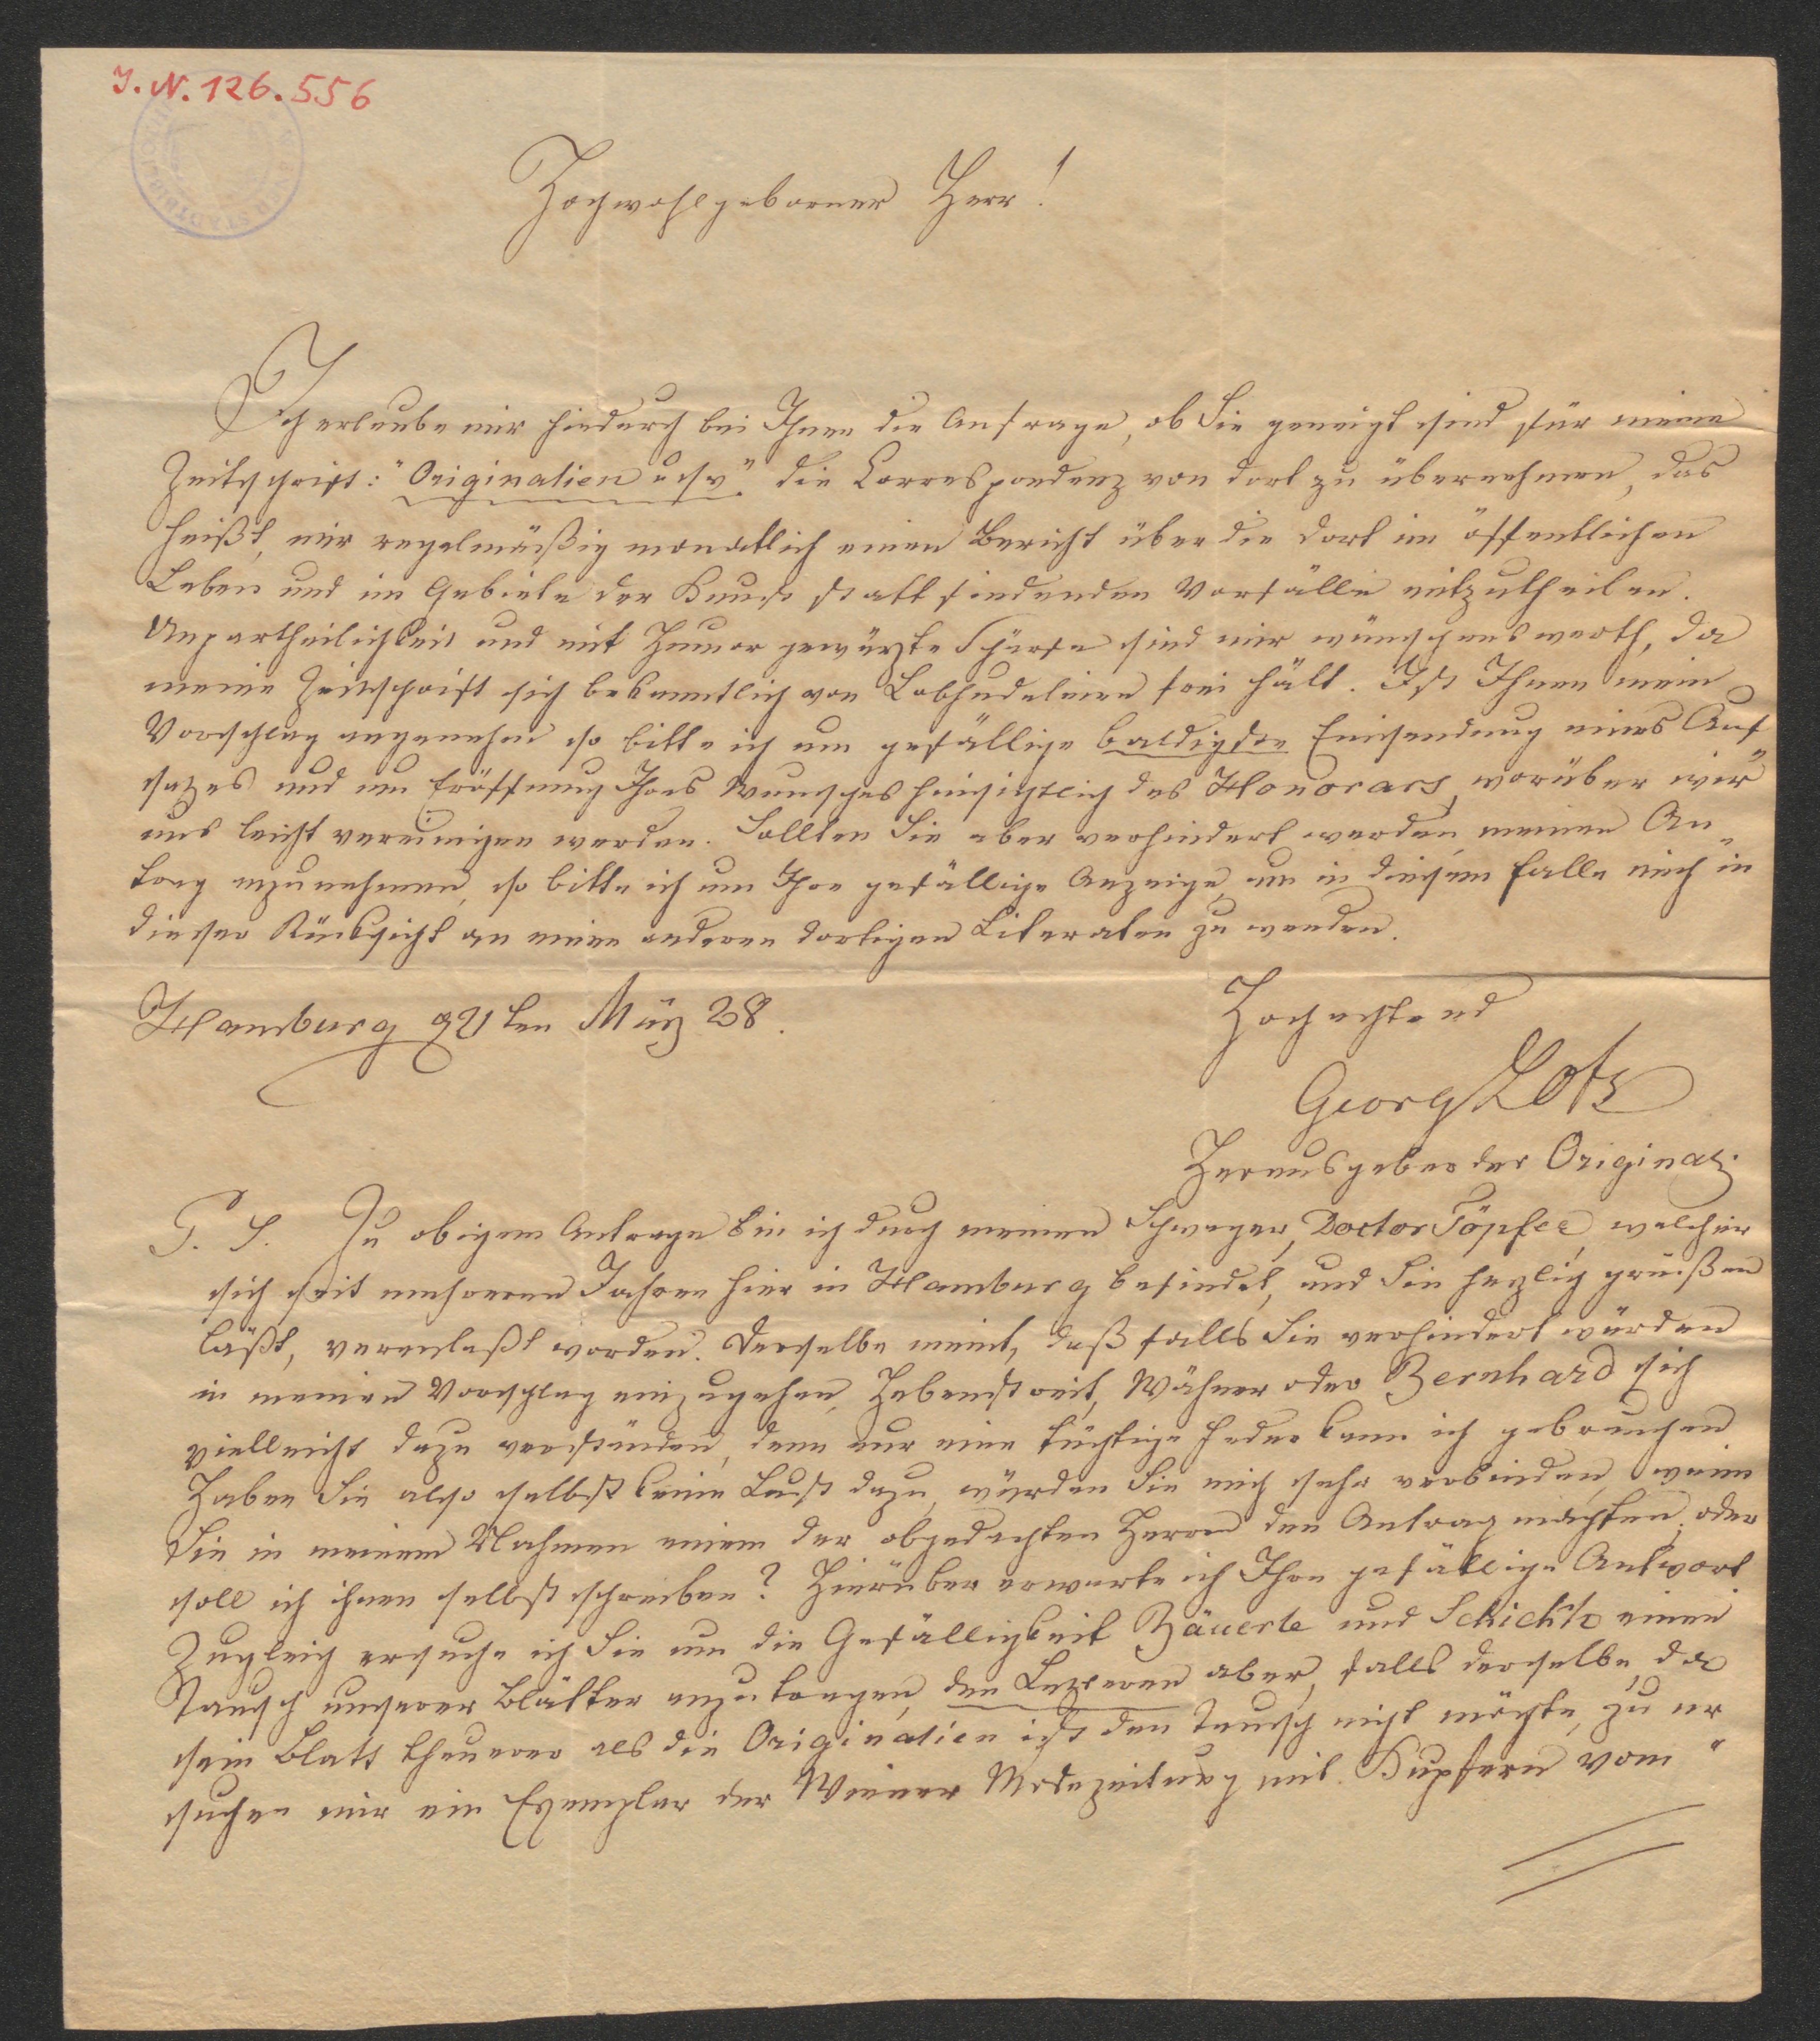 I. N. 126.556
Hochwohlgeborner Herr!
Ich erlaube mir hiedurch bei Ihnen die Anfrage, ob Sie geneigt sind für meine
Zeitschrift: "Originalien usw" die Correspondenz von dort zu übernehmen, das
heißt, mir regelmäßig monatlich einen Bericht über die dort im öffentlichen
Leben und im Gebiete der Kunst stattfindenden Vorfälle mitzutheilen.
Unpartheilichkeit und mit Humor gewürzte Schärfe sind mir wünschenswerth, da
meine Zeitschrift sich bekanntlich von Lobhudeleien frei hält. Ist Ihnen mein
Vorschlag angenehm so bitte ich um gefällige baldigste Einsendung eines Auf
satzes und um Eröffnung Ihres Wunsches hinsichtlich des Honorars, worüber wir
uns leicht vereinigen werden. Sollten Sie aber verhindert werden, meinen An„
trag anzunehmen, so bitte ich um Ihre gefällige Anzeige, um in diesem Falle mich in
dieser Rücksicht an einen anderen dortigen Literaten zu wenden.
Hamburg 21ten März 28.
Hochachtend
Georg Lotz
Herausgeber der Original.
P. S. Zu obigem Antrage bin ich durch meinen Schwager, Doctor Töpfer, welcher
sich seit mehreren Jahren hier in Hamburg befindet, und Sie herzlich grüßen
läßt, veranlaßt worden. Derselbe meint, daß falls Sie verhindert würden
in meinen Vorschlag einzugehen, Hebenstreit, Wähner oder Bernhard sich
vielleicht dazu verständen, denn nur eine tüchtige Feder kann ich gebrauchen
Haben Sie also selbst keine Lust dazu, würden Sie mich sehr verbinden, wenn
Sie in meinem Nahmen einem der obgedachten Herren den Antrag machten, oder
soll ich ihnen selbst schreiben? Hierüber erwarte ich Ihre gefällige Antwort
Zugleich ersuche ich Sie um die Gefälligkeit Bäuerle und Schickh einen
Tausch unserer Blätter anzutragen, den Lezteren aber, falls derselbe, da
sein Blatt theuerer als die Originalien ist den Tausch nicht möchte, zu er„
suchen mir ein Exemplar der Wiener Modezeitung mit Kupfern vom